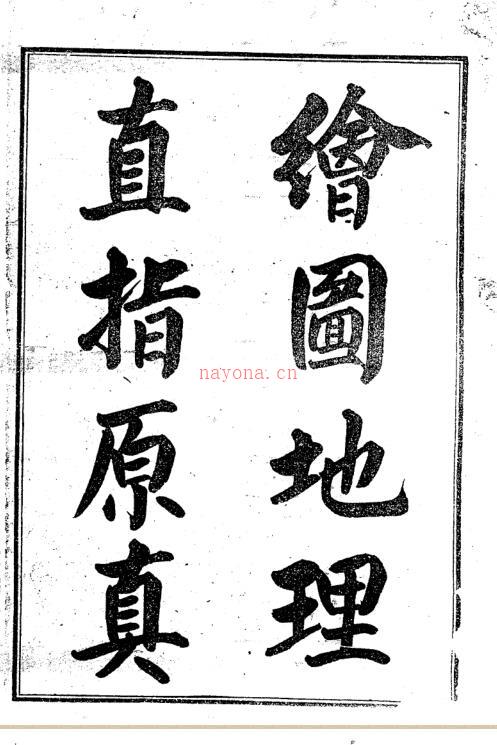 繪圖地理
直指原真
nayona.cn